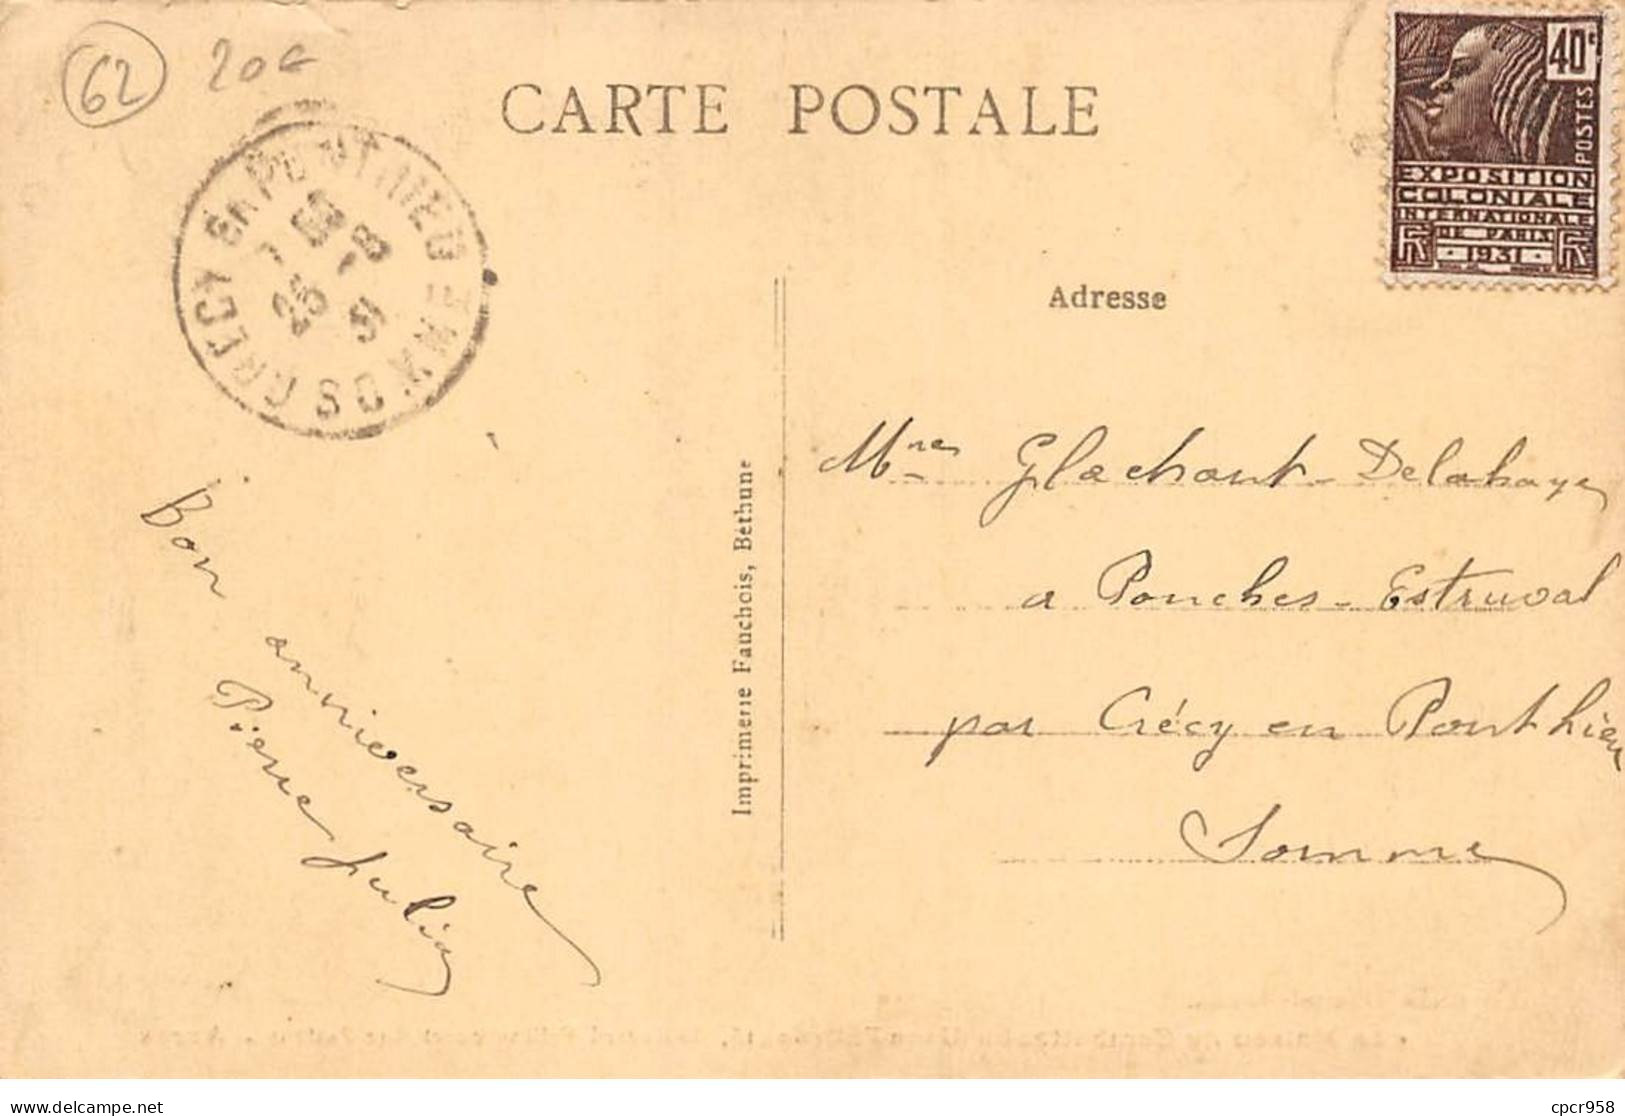 62
20€
CARTE POSTALE
40c
POSTES
EXPOSITION
COLONIALE
INTERNATIONALE
DE PARIS
RF 1931 RF
CRÉCY EN PONTHIEU
SOMME
25
Adresse
Mmes Glachant-Delahaye
a Ponches-Estruval
par Crécy en Ponthieu
Somme
Imprimerie Fauchois, Béthune
Bon anniversaire
Pierre Julia
delcampe.net
cpcr958